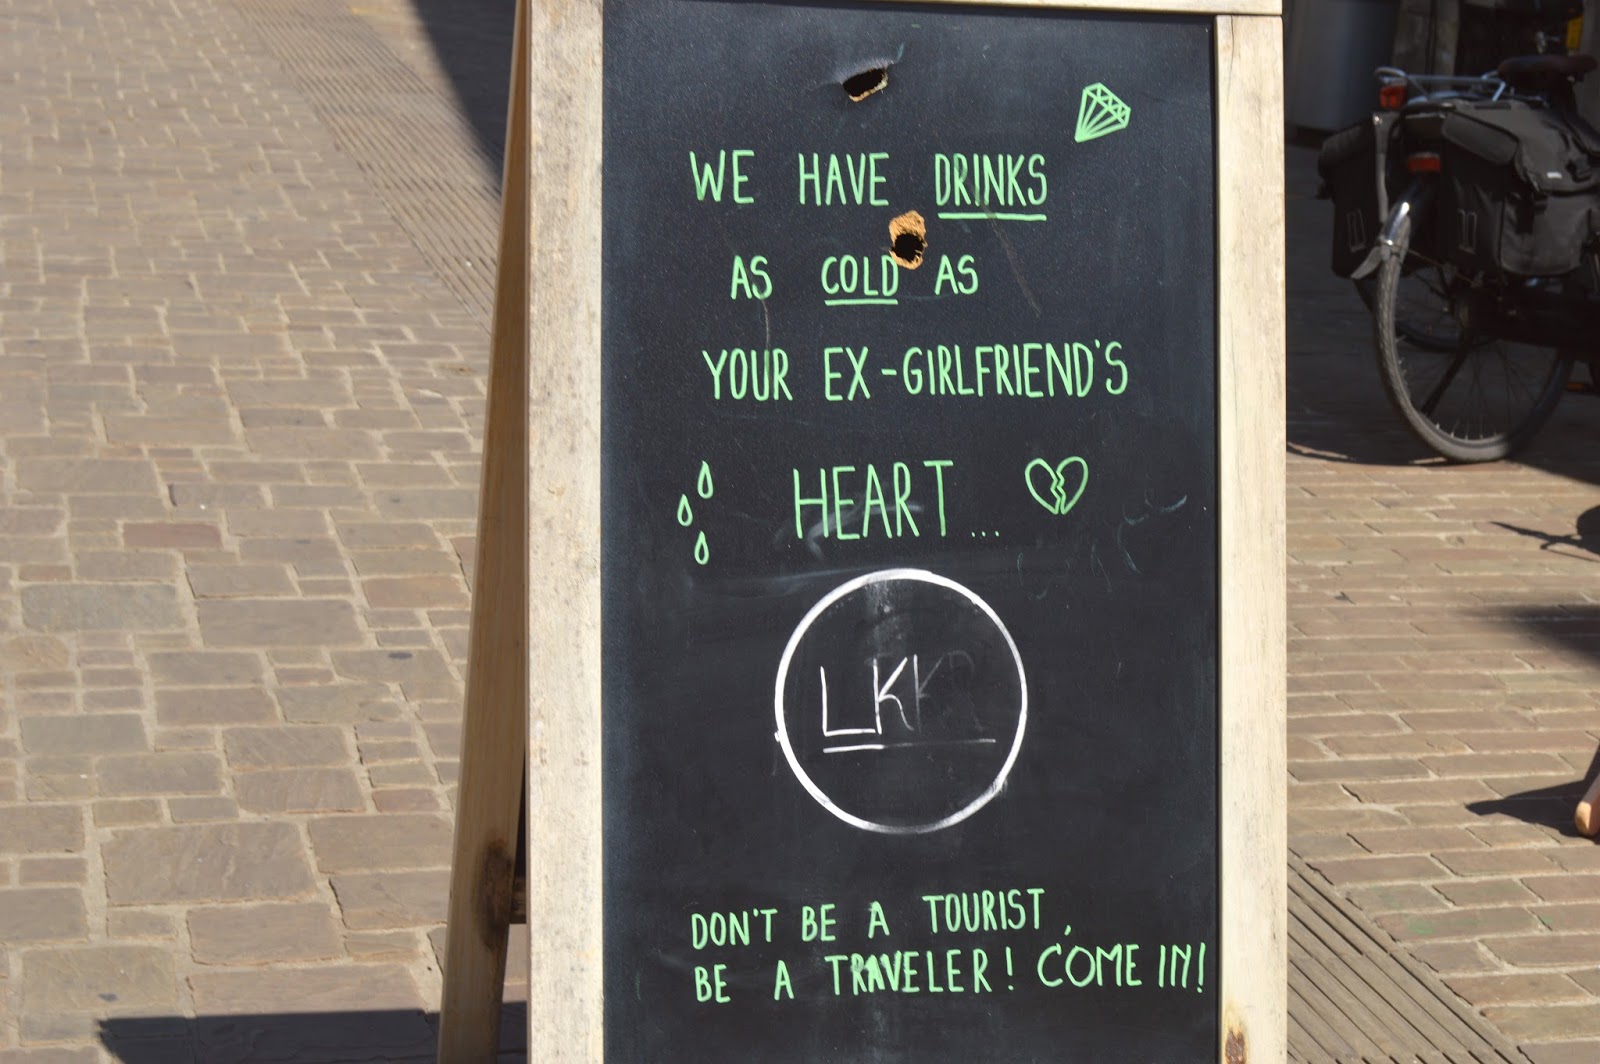 WE HAVE DRINKS
AS COLD AS
YOUR EX-GIRLFRIEND'S
HEART...
LKKR
DON'T BE A TOURIST,
BE A TRAVELER! COME IN!